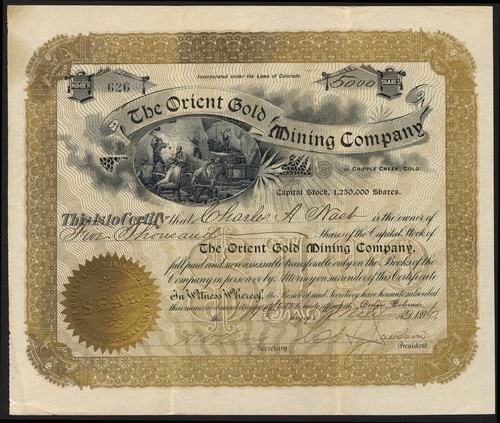 Incorporated under the Laws of Colorado.
NUMBER
626
SHARES
5000
The Orient Gold
Mining Company
of CRIPPLE CREEK, COLO.
Capital Stock, 1,250,000 Shares.
This Is to Certify that Charles A Nast is the owner of
Five Thousand Shares of the Capital Stock of
The Orient Gold Mining Company,
full paid and non assessable transferable only on the Books of the
Company in person or by Attorney on surrender of this Certificate
In Witness Whereof, the President and Secretary have hereunto subscribed
their names and caused the
Denver Colorado
this day of A.D. 189
SEAL
Secretary
President